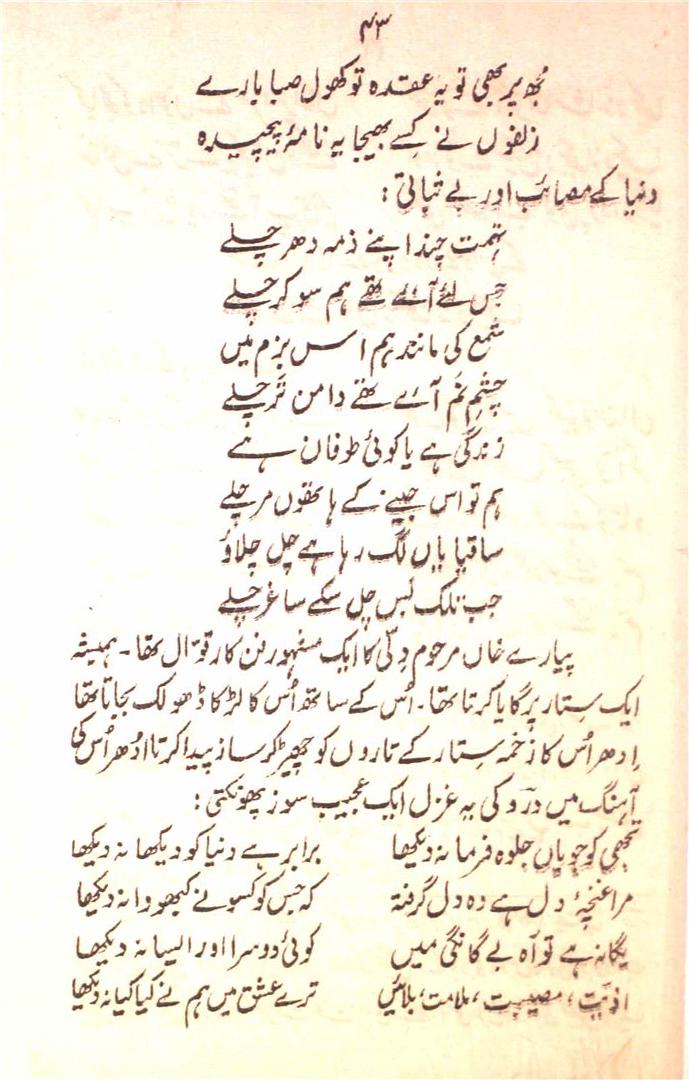 ۴۳
مُجھ پر بھی تو یہ عقدہ تو کھول صبا بارے
زلفوں نے کِسے بھیجا یہ نامۂ پیچیدہ
دنیا کے مصائب اور بے ثباتی :
تہمت چند اپنے ذمہ دھر چلے
جس لئے آئے تھے ہم سو کر چلے
شمع کی مانند ہم اس بزم میں
چشمِ نَم آئے تھے دامن تَر چلے
زندگی ہے یا کوئی طوفان ہے
ہم تو اس جینے کے ہاتھوں مر چلے
ساقیا یاں لگ رہا ہے چل چلاؤ
جب تلک بس چل سکے ساغر چلے
پیارے خاں مرحوم دِلّی کا ایک مشہور فن کار قوّال تھا۔ ہمیشہ
ایک سِتار پر گایا کرتا تھا۔ اُس کے ساتھ اُس کا لڑکا ڈھولک بجاتا تھا
اِدھر اُس کا زخمہ سِتار کے تاروں کو چھیڑ کر ساز پیدا کرتا اُدھر اُس کی
آہنگ میں دردؔ کی یہ غزل ایک عجیب سوز پھونکتی :
تجھی کو جو یاں جلوہ فرما نہ دیکھا برابر ہے دنیا کو دیکھا نہ دیکھا
مرا غنچۂ دل ہے وہ دل گرفتہ کہ جس کو کسو نے کبھو وا نہ دیکھا
یگانہ ہے تو آہ بے گانگی میں کوئی دوسرا اور ایسا نہ دیکھا
اذیّت، مصیبت، ملامت، بلائیں ترے عشق میں ہم نے کیا کیا نہ دیکھا